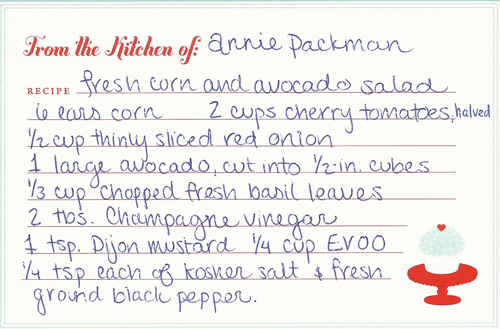 From the Kitchen of: annie packman
RECIPE fresh corn and avocado salad
6 ears corn 2 cups cherry tomatoes, halved
1/2 cup thinly sliced red onion
1 large avocado, cut into 1/2-in. cubes
1/3 cup chopped fresh basil leaves
2 tbs. Champagne vinegar
1 tsp. Dijon mustard 1/4 cup EVOO
1/4 tsp each of kosher salt & fresh
ground black pepper.